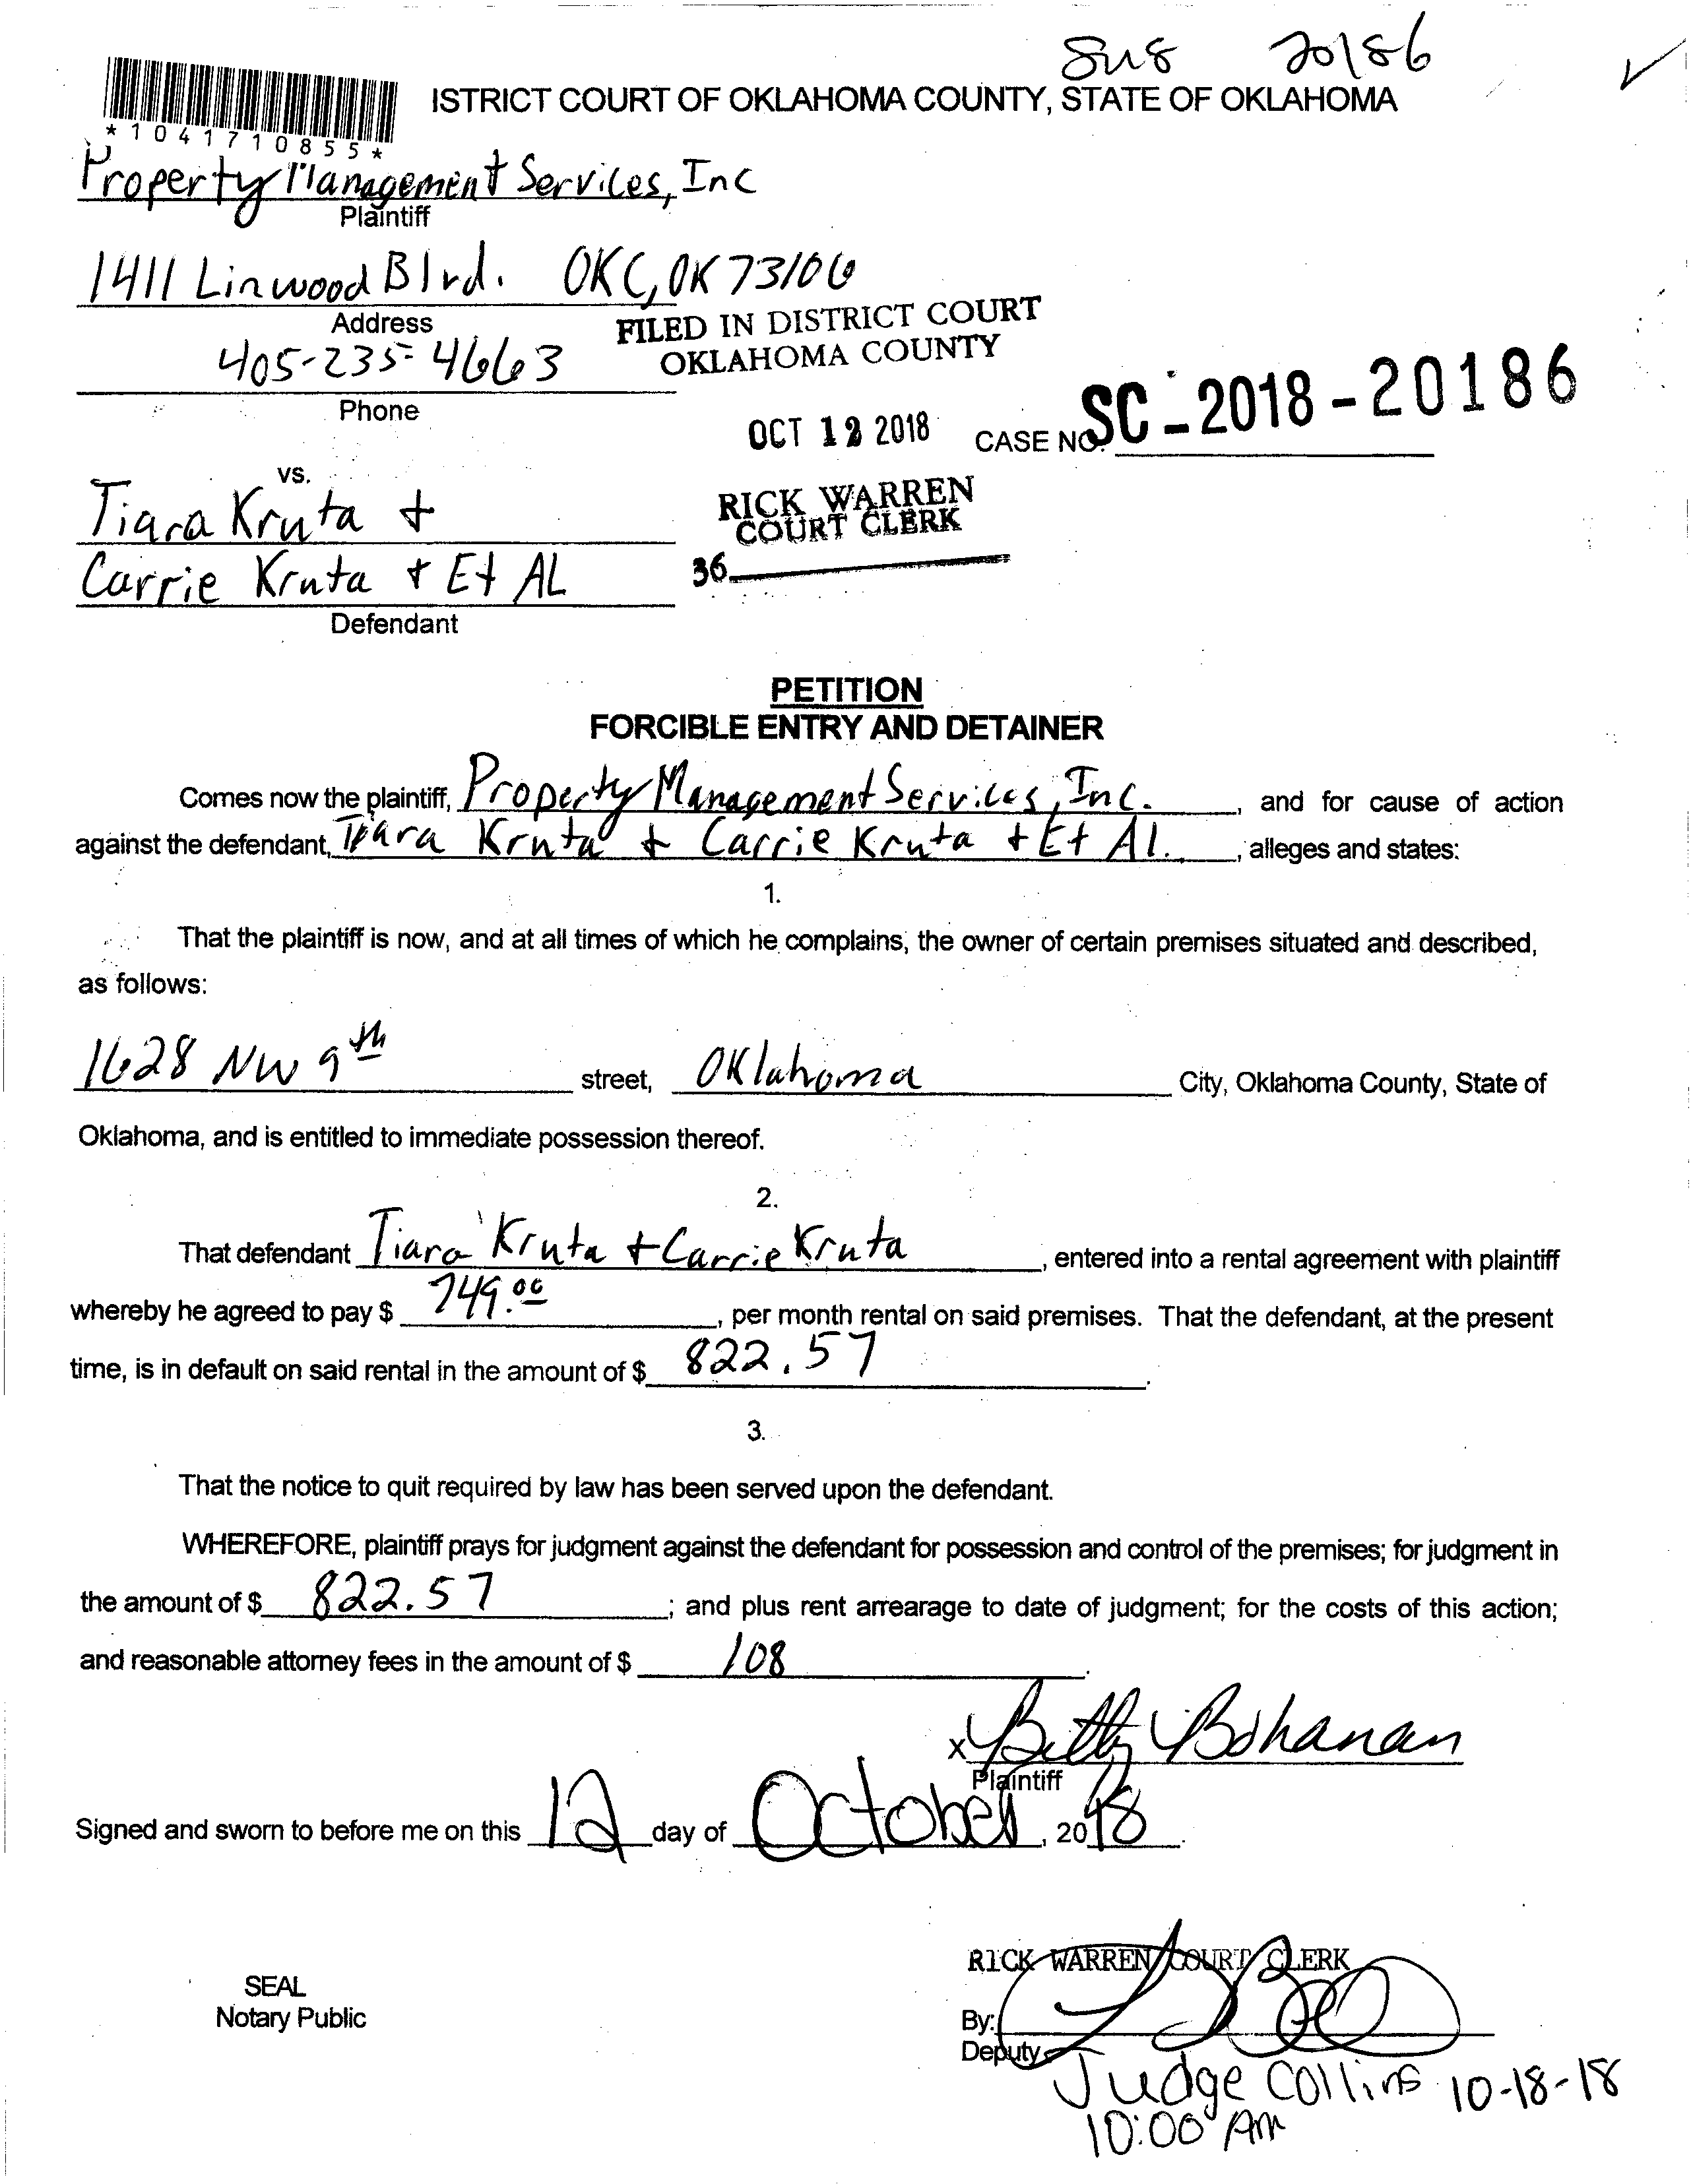 SUS 20186
ISTRICT COURT OF OKLAHOMA COUNTY, STATE OF OKLAHOMA
*1041710855*
Property Management Services, Inc
Plaintiff
1411 Linwood Blvd. OKC, OK 73106
Address
405-235-4663
Phone
FILED IN DISTRICT COURT
OKLAHOMA COUNTY
OCT 12 2018
CASE NO. SC-2018-20186
RICK WARREN
COURT CLERK
36
vs.
Tiara Kruta +
Carrie Kruta + Et AL
Defendant
PETITION
FORCIBLE ENTRY AND DETAINER
Comes now the plaintiff, Property Management Services, Inc. , and for cause of action
against the defendant, Tiara Kruta + Carrie Kruta + Et Al. , alleges and states:
1.
That the plaintiff is now, and at all times of which he complains, the owner of certain premises situated and described,
as follows:
1628 NW 9th street, Oklahoma City, Oklahoma County, State of
Oklahoma, and is entitled to immediate possession thereof.
2.
That defendant Tiara Kruta + Carrie Kruta , entered into a rental agreement with plaintiff
whereby he agreed to pay $ 749.00 , per month rental on said premises. That the defendant, at the present
time, is in default on said rental in the amount of $ 822.57 .
3.
That the notice to quit required by law has been served upon the defendant.
WHEREFORE, plaintiff prays for judgment against the defendant for possession and control of the premises; for judgment in
the amount of $ 822.57 ; and plus rent arrearage to date of judgment; for the costs of this action;
and reasonable attorney fees in the amount of $ 108 .
x Betty Bohanan
Plaintiff
Signed and sworn to before me on this 12 day of October , 2018 .
RICK WARREN COURT CLERK
SEAL
Notary Public
By:
Deputy
Judge Collins 10-18-18
10:00 AM